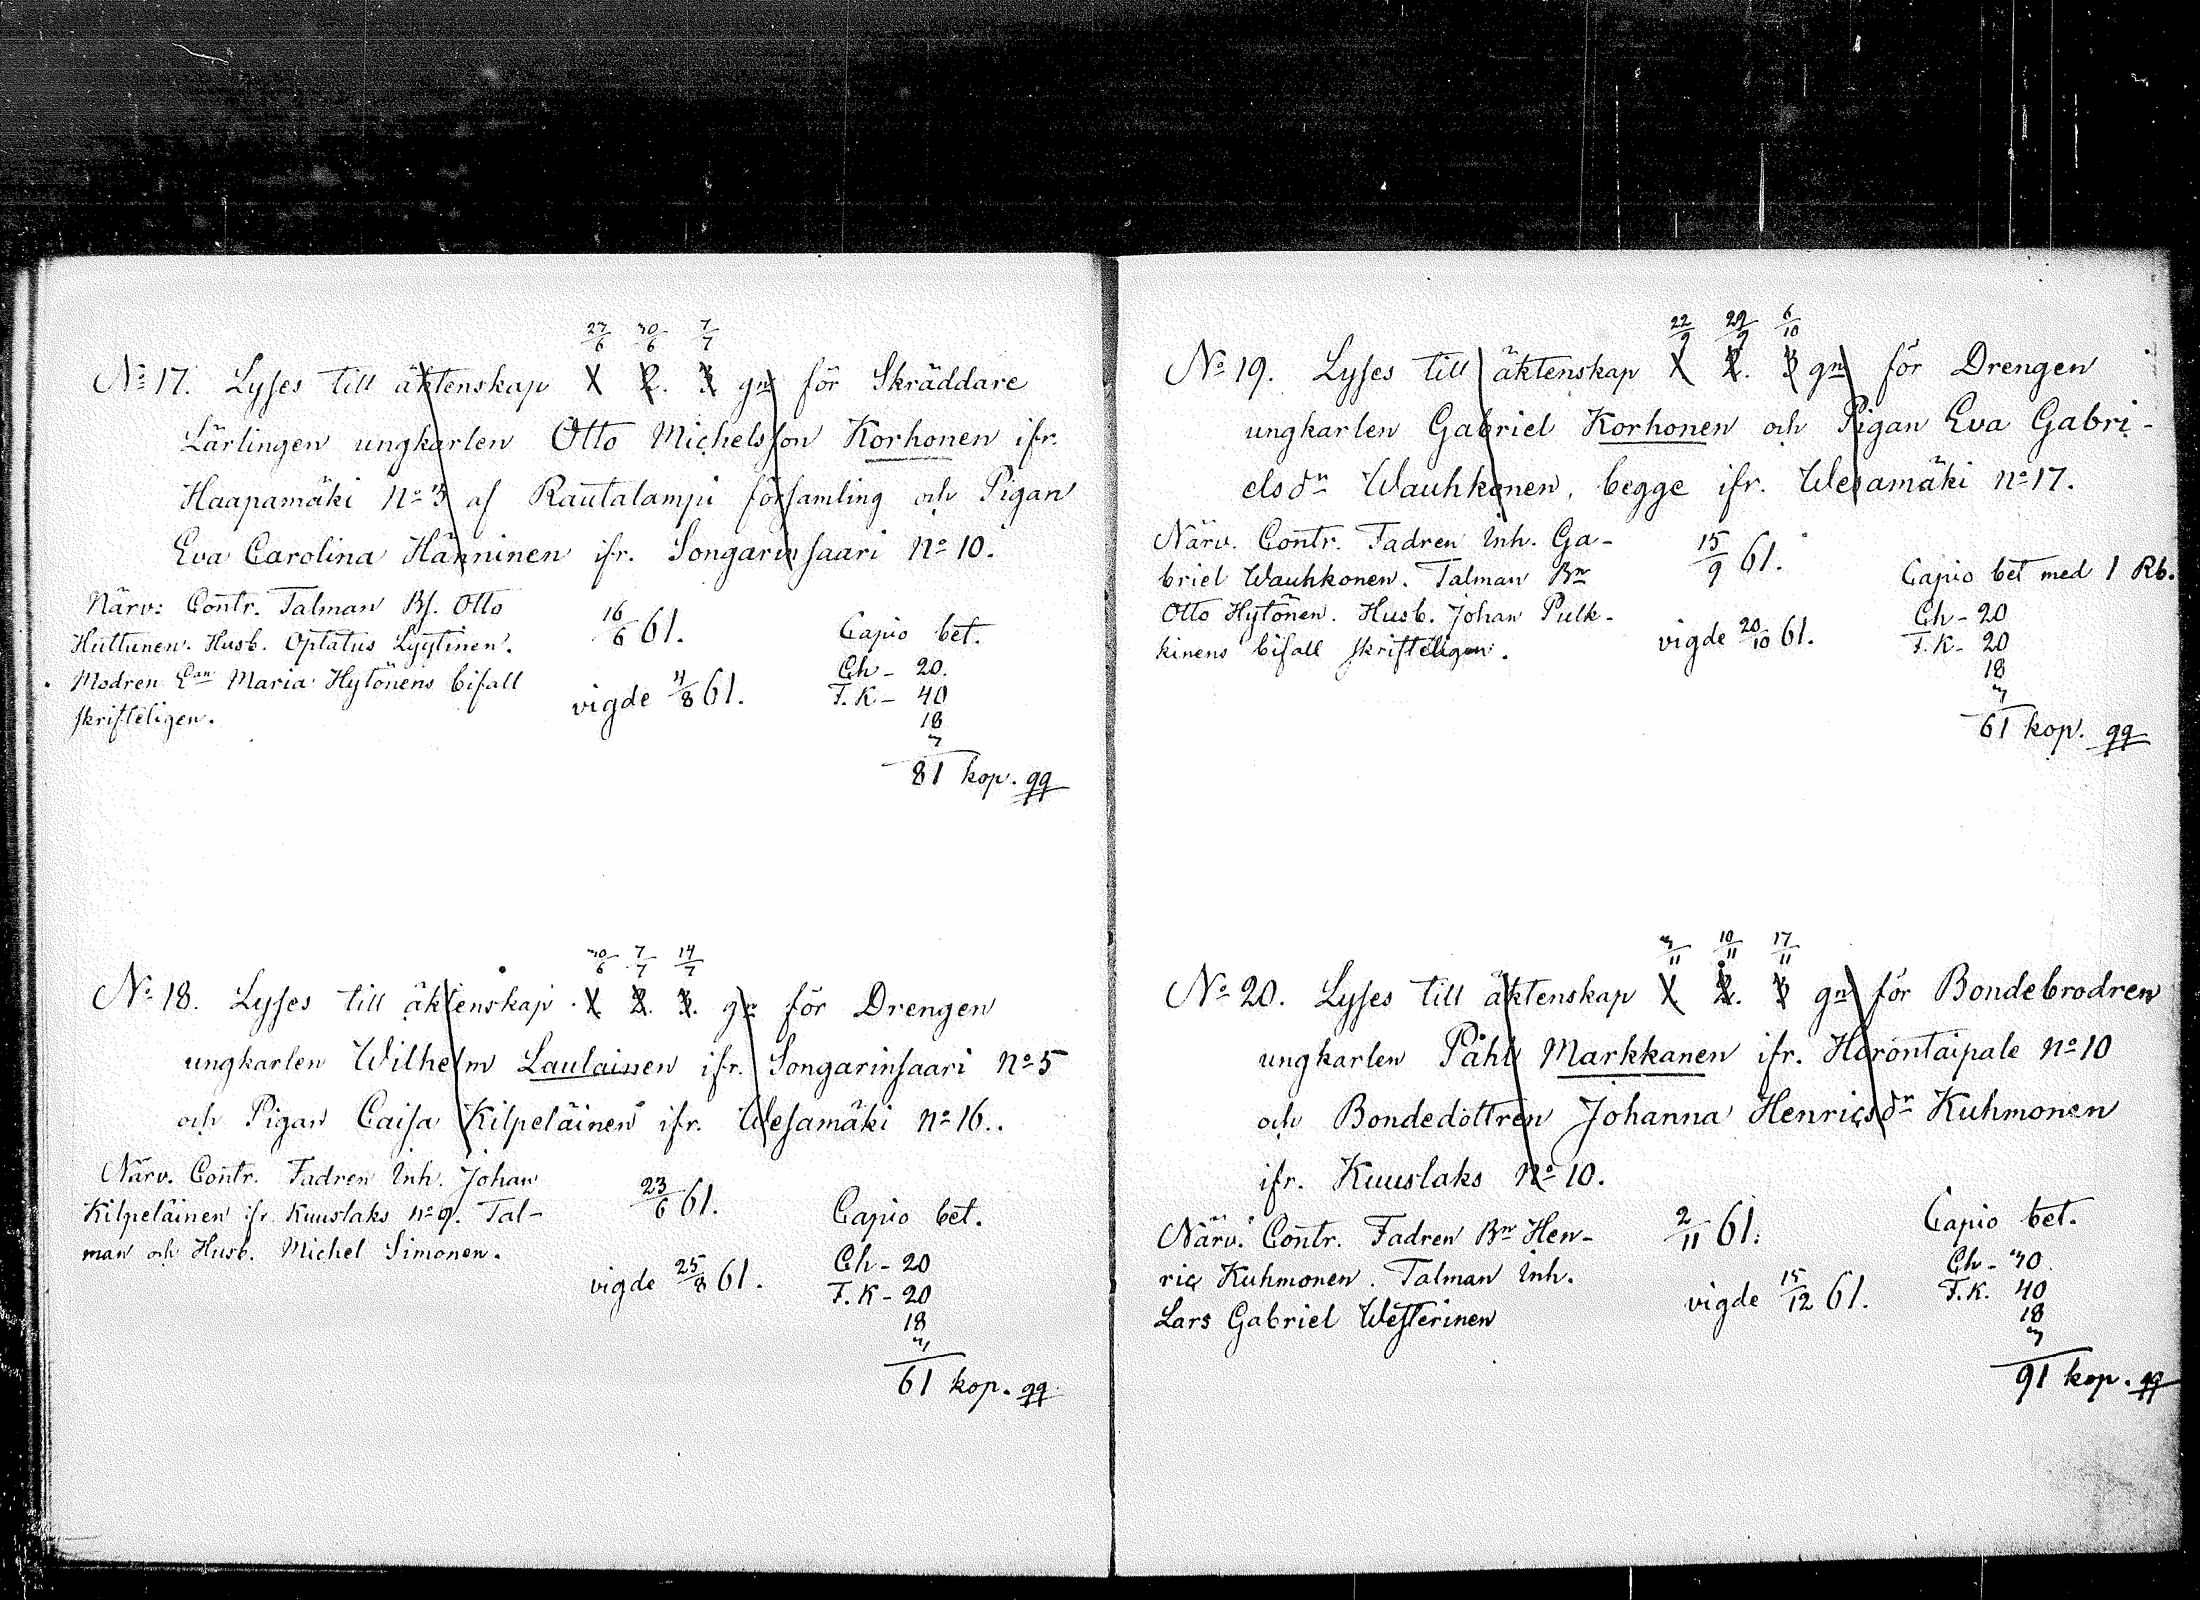 23/6 30/6 7/7
No 17. Lyses till äktenskap 1 2. 3 gn för Skräddare
Lärlingen ungkarlen Otto Michelsson Korhonen ifr.
Haapamäki No 3 af Rautalampi församling och Pigan
Eva Carolina Hänninen ifr. Songarinsaari No 10.
Närv: Contr. Talman Bf. Otto
Huttunen. Husb. Optatus Lyytinen.
Modren Ean Maria Hytönens bifall
skrifteligen.
16/6 61.
vigde 4/8 61.
Capio bet.
Ch - 20.
F.K - 40
18
3
81 kop. qq
30/6 7/7 14/7
No 18. Lyses till äktenskap 1 2. 3. gn för Drengen
ungkarlen Wilhelm Laulainen ifr. Songarinsaari No 5
och Pigan Caisa Kilpeläinen ifr. Wesamäki No 16..
Närv. Contr. Fadren Inh. Johan
Kilpeläinen ifr. Kuuslaks No 9. Tal-
man och Husb. Michel Simonen.
23/6 61.
vigde 25/8 61.
Capio bet.
Ch - 20
F.K - 20
18
3
61 kop. qq
22/9 29/9 6/10
No 19. Lyses till äktenskap 1 2. 3 gn för Drengen
ungkarlen Gabriel Korhonen och Pigan Eva Gabri-
elsdr Wauhkonen, begge ifr. Wesamäki No 17.
Närv. Contr. Fadren Inh. Ga-
briel Wauhkonen. Talman Bn
Otto Hytönen. Husb. Johan Pulk-
kinens bifall skrifteligen.
15/9 61.
vigde 20/10 61.
Capio bet med 1 Rb.
Ch - 20
F.K - 20
18
3
61 kop. qq
3/11 10/11 17/11
No 20. Lyses till äktenskap 1 2. 3 gn för Bondebrodren
ungkarlen Påhl Markkanen ifr. Horontaipale No 10
och Bondedottren Johanna Henricsdr Kuhmonen
ifr. Kuuslaks No 10.
Närv. Contr. Fadren Bn Hen-
ric Kuhmonen. Talman Inh.
Lars Gabriel Westerinen
2/11 61.
vigde 15/12 61.
Capio bet.
Ch - 30.
F.K. 40
18
3
91 kop. qq